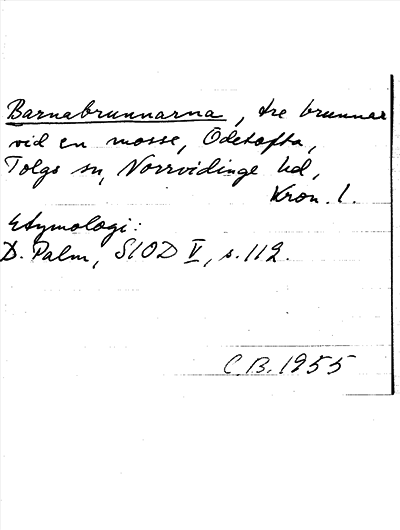 Barnabrunnarna, tre brunnar
vid en mosse, Odetofta,
Tolgs sn, Norrvidinge hd,
Kron. l.
Etymologi:
D. Palm, SIOD V, s. 112.
C.B. 1955